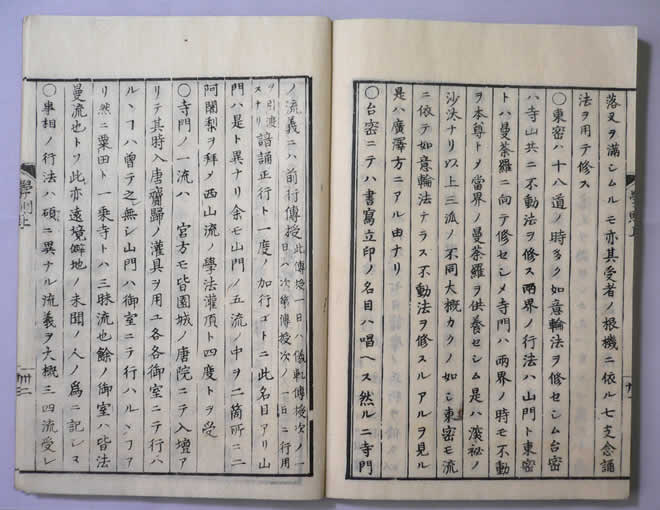 落叉ヲ滿シムルモ亦其受者ノ根機ニ依ル七支念誦
法ヲ用テ修ス
〇東密ハ十八道ノ時多ク如意輪法ヲ修セシム台密
ハ寺山共ニ不動法ヲ修ス兩界ノ行法ハ山門ト東密
トハ曼荼羅ニ向テ修セシメ寺門ハ兩界ノ時モ不動
ヲ本尊トメ當界ノ曼荼羅ヲ供養セシム是ハ深祕ノ
沙汰ナリ以上三派ノ不同大概カクノ如シ東密モ流
ニ依テ如意輪法ナラス不動法ヲ修スルアルヲ見ル
是ハ廣澤方ニアル由ナリ
〇台密ニテハ書寫立印ノ名目ハ唱ヘス然ルニ寺門
ノ流義ニハ前行傳授此傳授一日ハ儀軌傳授次ノ一
日ハ次第傳授次ノ一日ニ行用
ヲ引渡
スナリ諳誦正行ト一度ノ加行ゴトニ此名目アリ山
門ハ是ト異ナリ余モ山門ノ五流ノ中ヲ二箇所ニ二
阿闍梨ヲ拜メ西山流ノ學法灌頂ト四度トヲ受
〇寺門ノ一流ハ宮方モ皆園城ノ唐院ニテ入壇ア
リテ其時入唐齎歸ノ灌具ヲ用ユ各各御室ニテ行ハ
ルヽヿハ曾テ之無シ山門ハ御室ニテ行ハルヽヿア
リ然ニ粟田ト一乘寺トハ三昧流也餘ノ御室ハ皆法
曼流也トソ此亦遠境僻地ノ未聞ノ人ノ爲ニ記シス
〇事相ノ行法ハ碩ニ異ナル流義ヲ大概三四流受レ